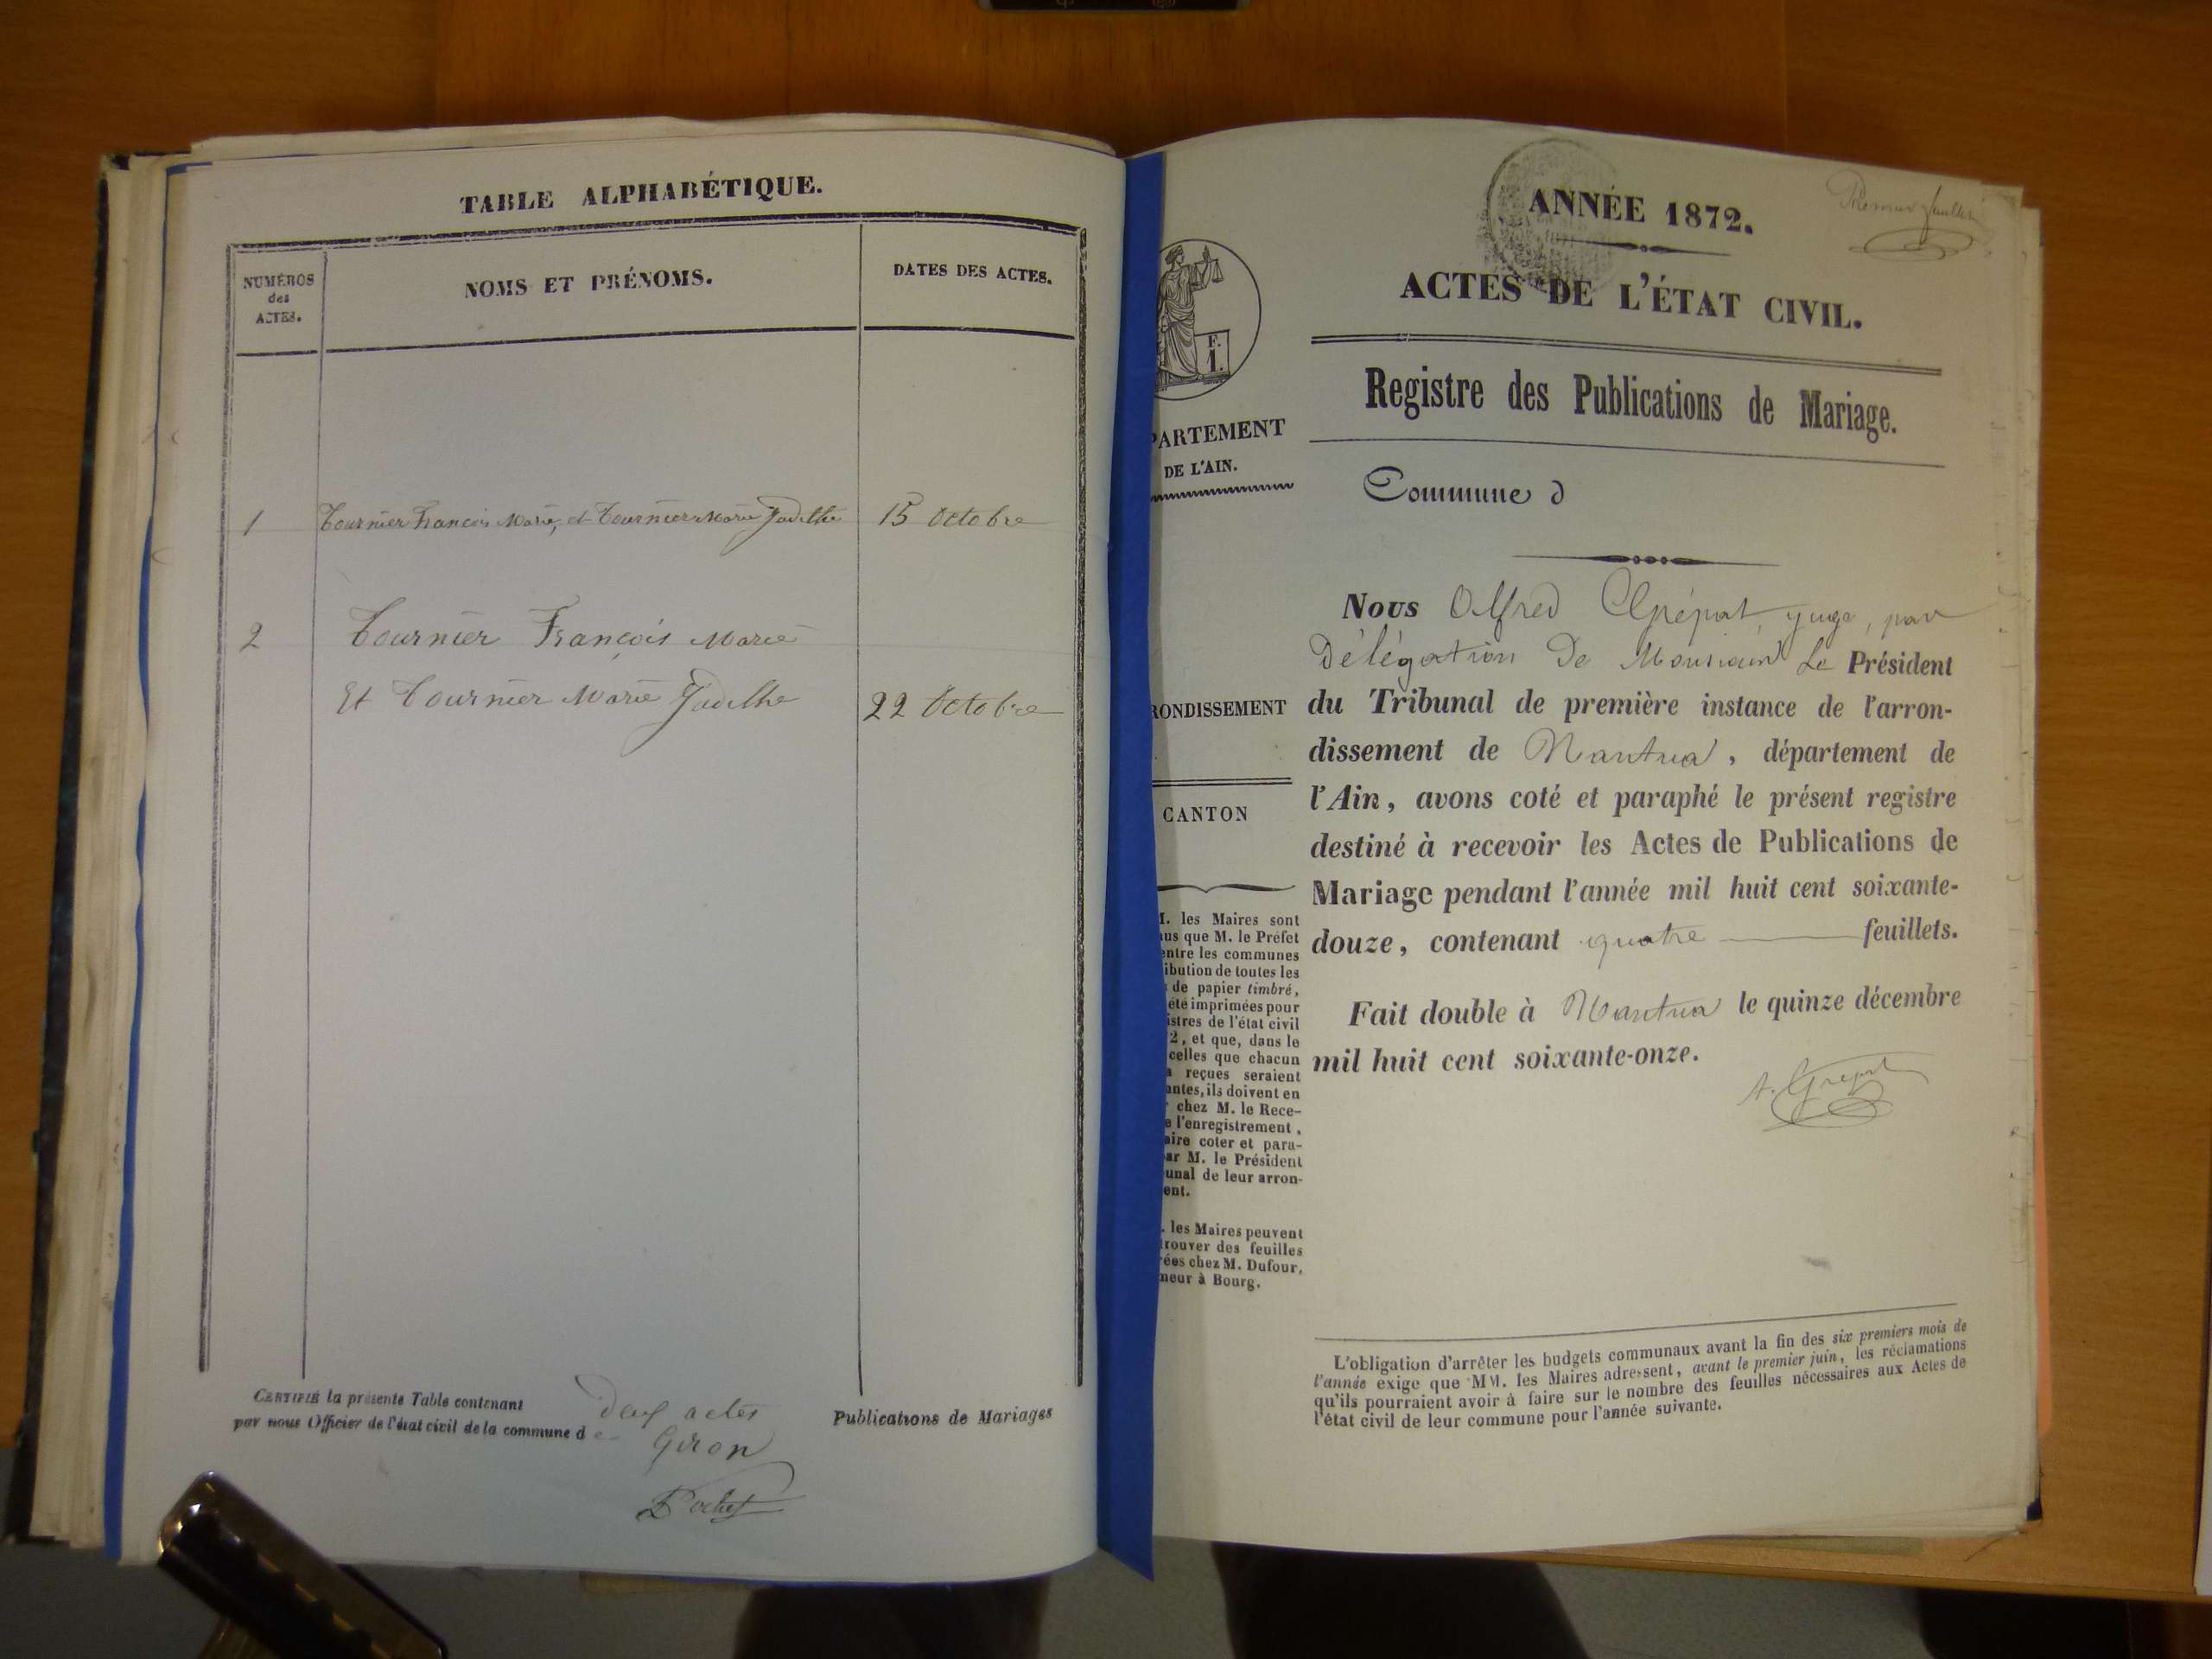 TABLE ALPHABÉTIQUE.
NUMÉROS
des
ACTES.
NOMS ET PRÉNOMS.
DATES DES ACTES.
1 Tournier François Marie, et Tournier Marie Judithe 15 Octobre
2 Tournier François Marie
Et Tournier Marie Judithe 22 Octobre
CERTIFIÉ la présente Table contenant deux actes Publications de Mariages
par nous Officier de l'état civil de la commune de Giron
Premier feuillet
ANNÉE 1872.
ACTES DE L'ÉTAT CIVIL.
Registre des Publications de Mariage.
F.
1.
PARTEMENT
DE L'AIN.
RONDISSEMENT
CANTON
M. les Maires sont
us que M. le Préfet
entre les communes
ibution de toutes les
de papier timbré,
été imprimées pour
istres de l'état civil
2, et que, dans le
celles que chacun
a reçues seraient
antes, ils doivent en
r chez M. le Rece-
e l'enregistrement,
aire coter et para-
ar M. le Président
unal de leur arron-
ent.
. les Maires peuvent
trouver des feuilles
rées chez M. Dufour,
meur à Bourg.
Commune d
Nous Alfred Grépat, juge, par
délégation de Monsieur Le Président
du Tribunal de première instance de l'arron-
dissement de Nantua, département de
l'Ain, avons coté et paraphé le présent registre
destiné à recevoir les Actes de Publications de
Mariage pendant l'année mil huit cent soixante-
douze, contenant quatre feuillets.
Fait double à Nantua le quinze décembre
mil huit cent soixante-onze.
A. Grépat
L'obligation d'arrêter les budgets communaux avant la fin des six premiers mois de
l'année exige que MM. les Maires adressent, avant le premier juin, les réclamations
qu'ils pourraient avoir à faire sur le nombre des feuilles nécessaires aux Actes de
l'état civil de leur commune pour l'année suivante.